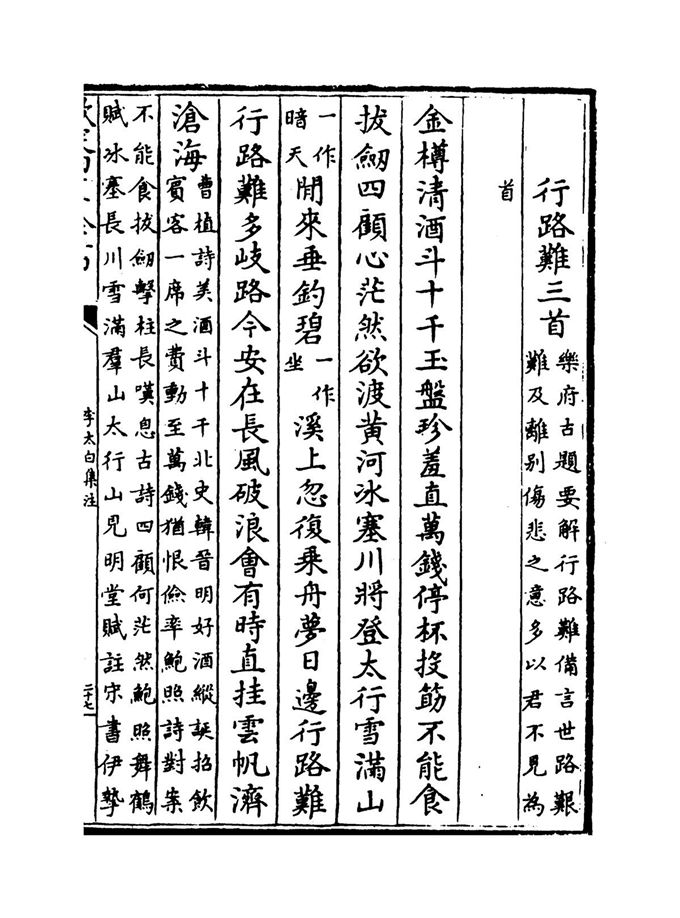 行路難三首樂府古題要解行路難備言世路艱
難及離别傷悲之意多以君不見為
首
金樽清酒斗十千玉盤珍羞直萬錢停杯投筯不能食
拔劒四顧心茫然欲渡黄河冰塞川將登太行雪滿山
一作
暗天閒來垂釣碧一作
坐溪上忽復乗舟夢日邊行路難
行路難多岐路今安在長風破浪㑹有時直挂雲帆濟
滄海曹植詩美酒斗十千北史韓晉明好酒縱誕招飲
賔客一席之費動至萬錢猶恨儉率鮑照詩對案
不能食拔劒擊柱長嘆息古詩四顧何茫然鮑照舞鶴
賦冰塞長川雪滿羣山太行山見明堂賦註宋書伊摯
李太白集注
二十七